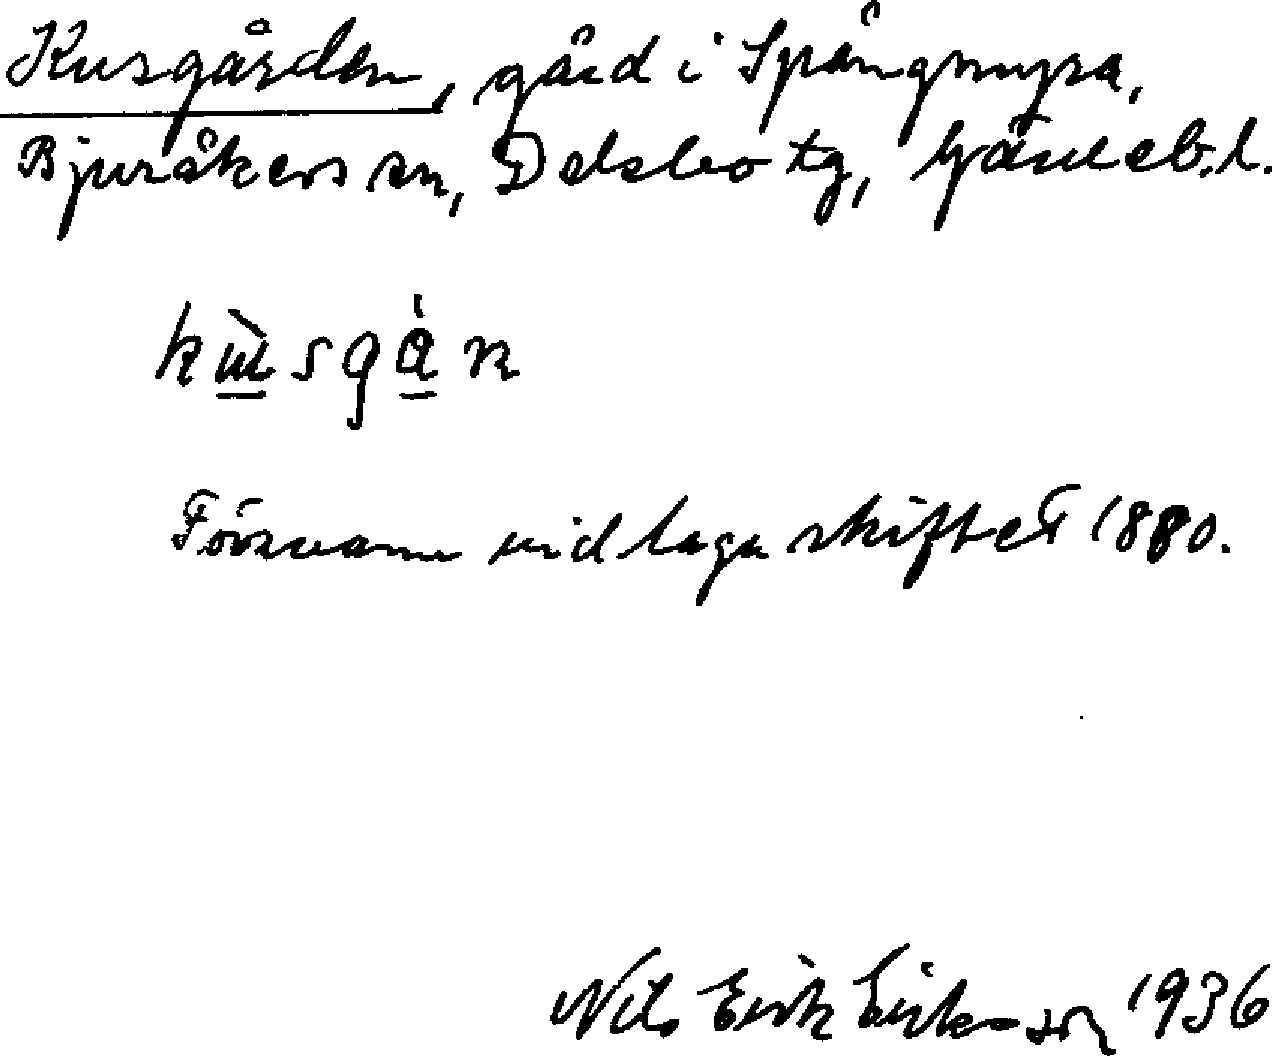 Kusgården, gård i Spångmyra,
Bjuråkers sn, Delsbo tg, Gävleb. l.
kùsgàn
Försvann vid laga skiftet 1880.
Nils Erik Eriksson 1936